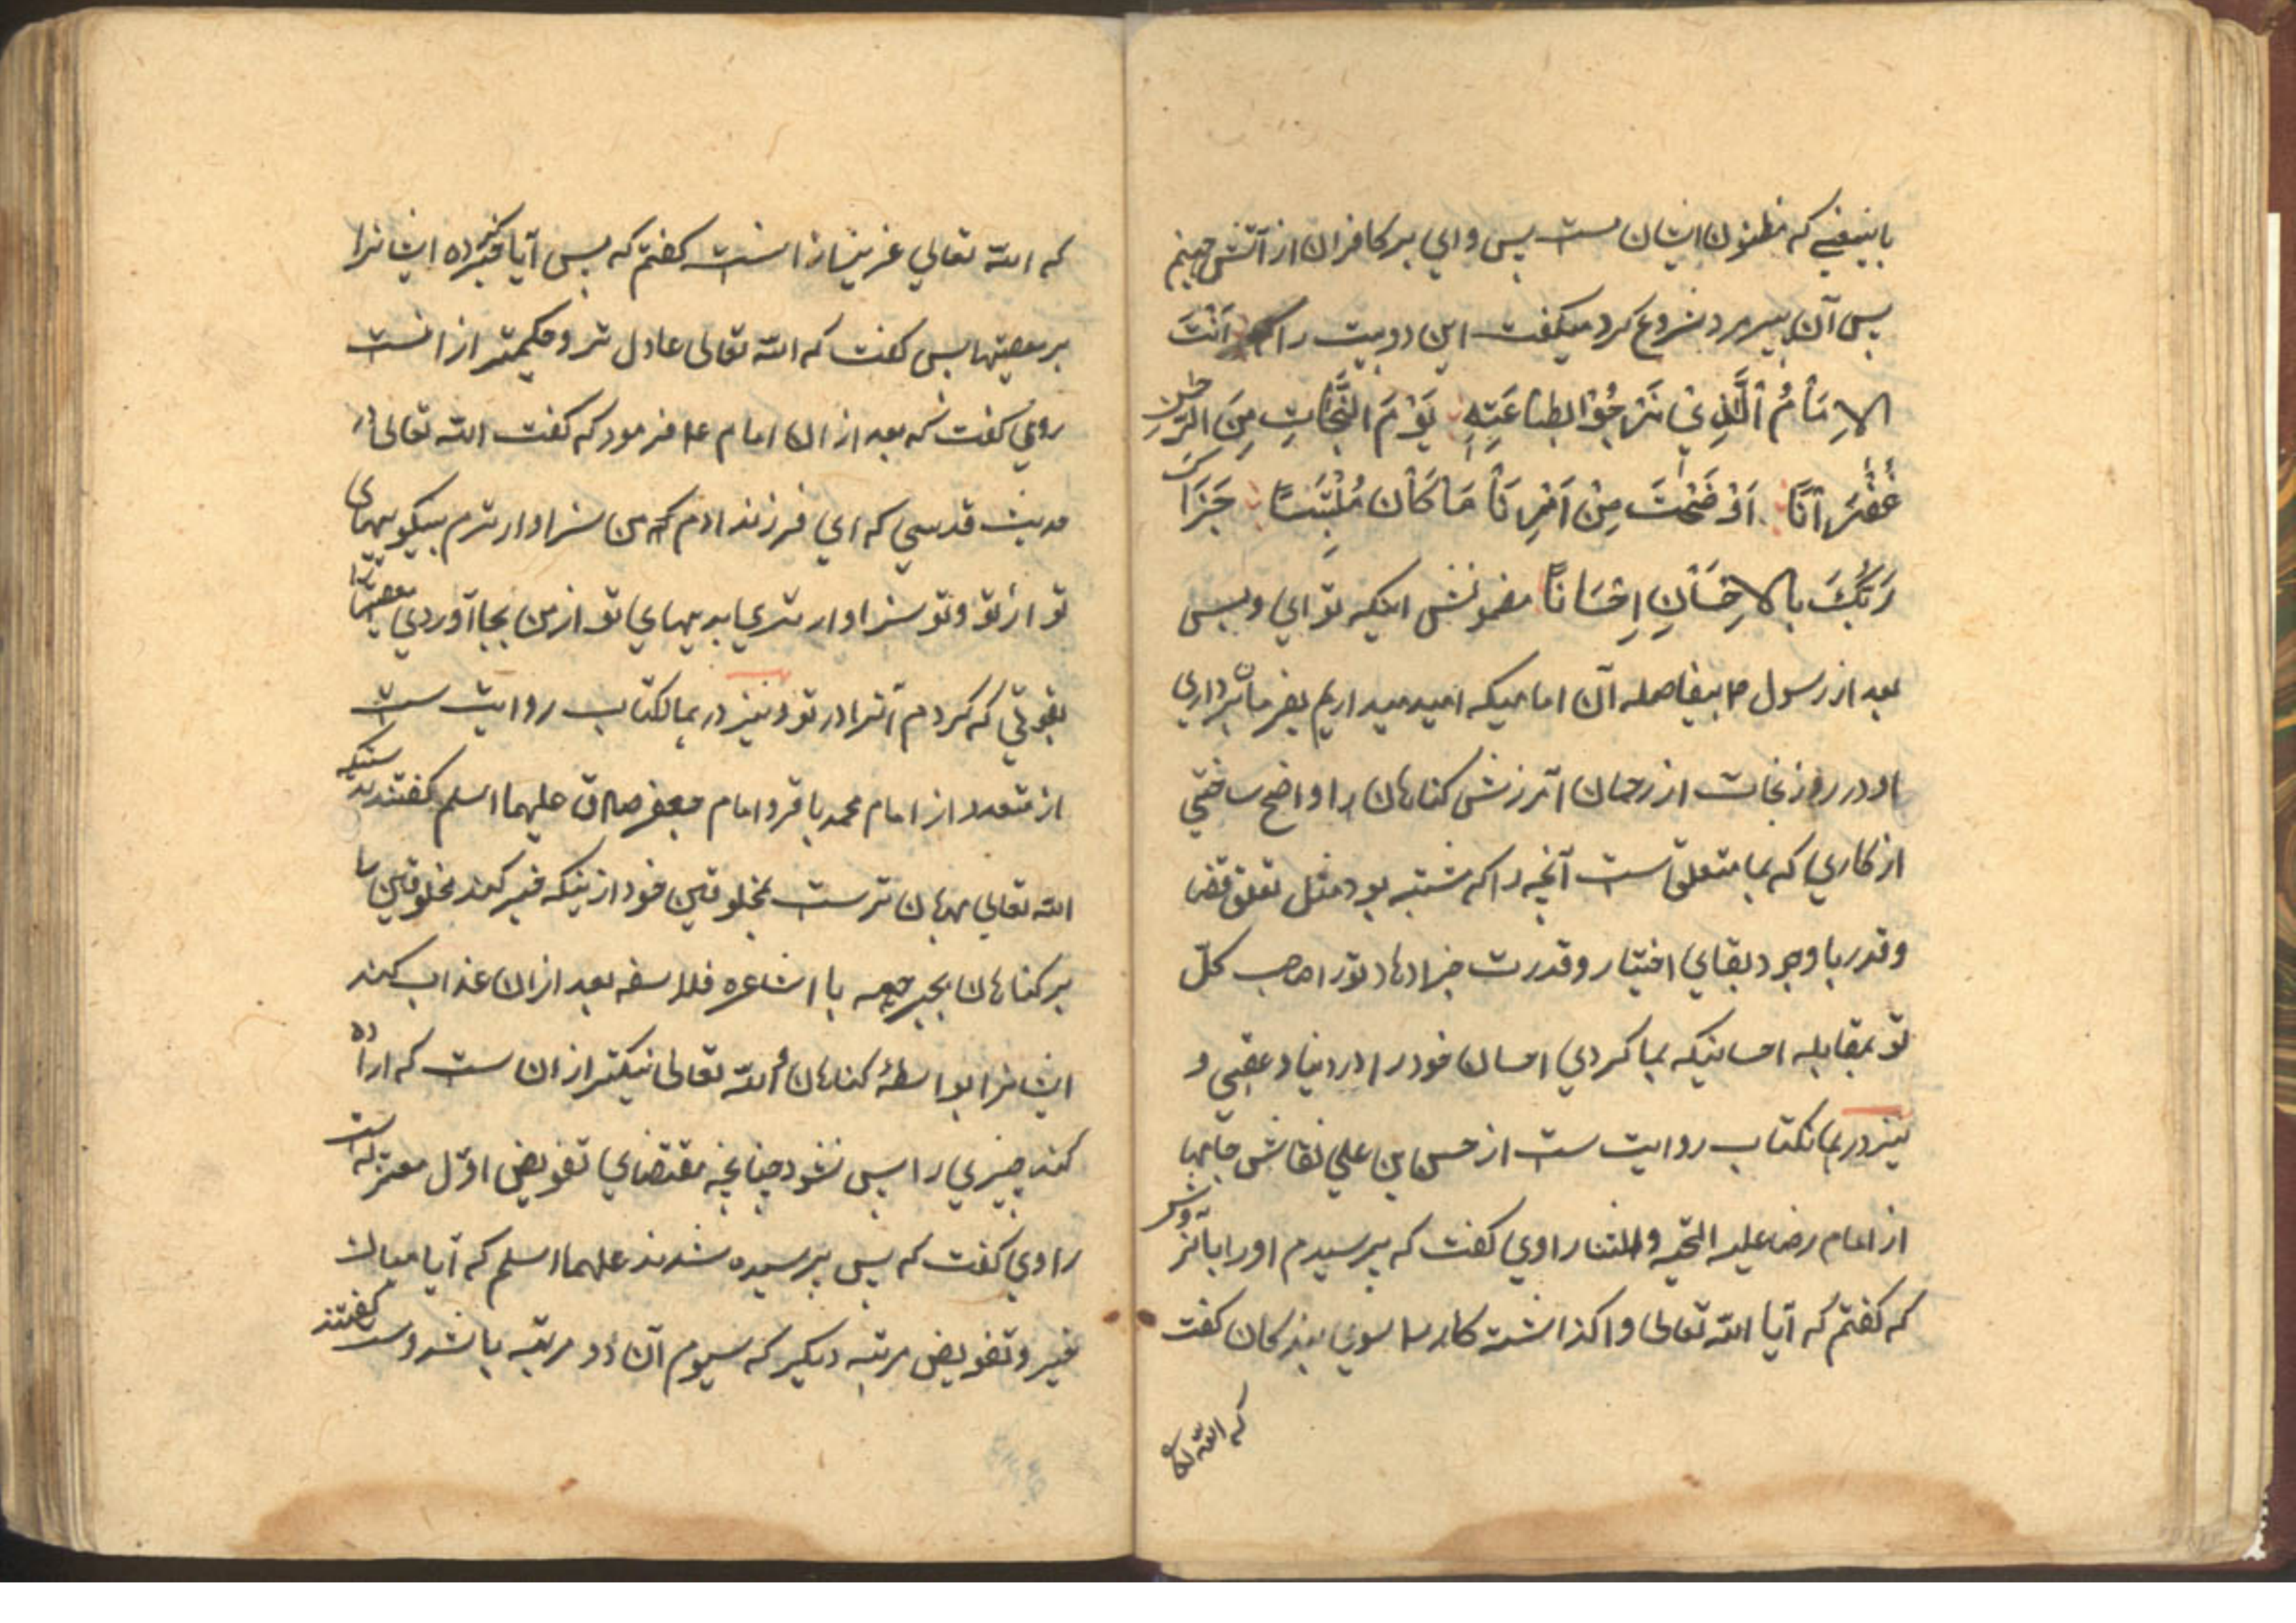 باینمعنی که مظنون ایشان ست پس وای بر کافران از آتش جهنم
پس آن پیر مرد شروع کرد میکفت این دو بیت را که اَنْتَ
الاِمَامُ الَّذِيْ نَرْجُوْا بِطَاعَتِهِ یَوْمَ النَّجَاتِ مِنَ الرَّحْمنِ
غُفْرَانًا اَوْضَحْتَ مِنْ اَمْرِنَا مَا کَانَ مُلْتَبَسًا جَزَاکَ
رَبُّكَ بِالاِحْسَانِ اِحْسَانًا مضمونش اینکه تو ای و بس
بعد از رسول ص بیفاصله آن امامیکه امید میداریم بفرمان برداری
او در روز نجات از رحمان آمرزش کناهان را واضح ساختی
از کاری که بما متعلق ست آنچه را که مشتبه بود مثل تعلق قضا
و قدر با وجود بقای اختیار و قدرت جزا دهاد تورا صاحب کلّ
تو بمقابله احسانیکه بما کردی احسان خود را در دنیا و عقبی و
نیز در همانکتاب روایت ست از حسن ابن علی نقاش جامها
از امام رضا علیه التحیه و الثنا راوی کفت که پرسیدم اورا باینروش
که کفتم که آیا الله تعالی واکذاشته کار را سوی بندکان کفت
که الله تعا
که الله تعالی عزیزتر ازانست کفتم که پس آیا جبر کرده ایشانرا
بر معصیتها پس کفت که الله تعالی عادل تر و حکیمتر ازانست
روای کفت که بعد ازان امام ع فرمود که کفت الله تعالی در
حدیث قدسی که ای فرزند ادم که من سزاوار ترم بنیکوییهای
تو از تو و تو سزاوار تری ببدیهای تو از من بجا آوردی معصیتها را
بقوتی که کردم آنرا در تو و نیز در همانکتاب روایت ست
از متعدد از امام محمد باقر و امام جعفر صادق علیهما السلم کفتند بدرستیکه
الله تعالی مهربان ترست بمخلوقین خود ازینکه جبر کند مخلوقین را
بر کناهان بجبر جهمیه یا اشاعره فلاسفه بعد ازان عذاب کند
ایشانرا بواسطهٔ کناهان و الله تعالی نیکتر ازان ست که اراده
کند چیزی را پس نشود چنانچه مقتضای تفویض اوّل معتزله است
راوی کفت که پس پرسیده شدند علیهما السلم که آیا میان
جبر و تفویض مرتبه دیکر که سیوم آن دو مرتبه باشد و ست کفتند